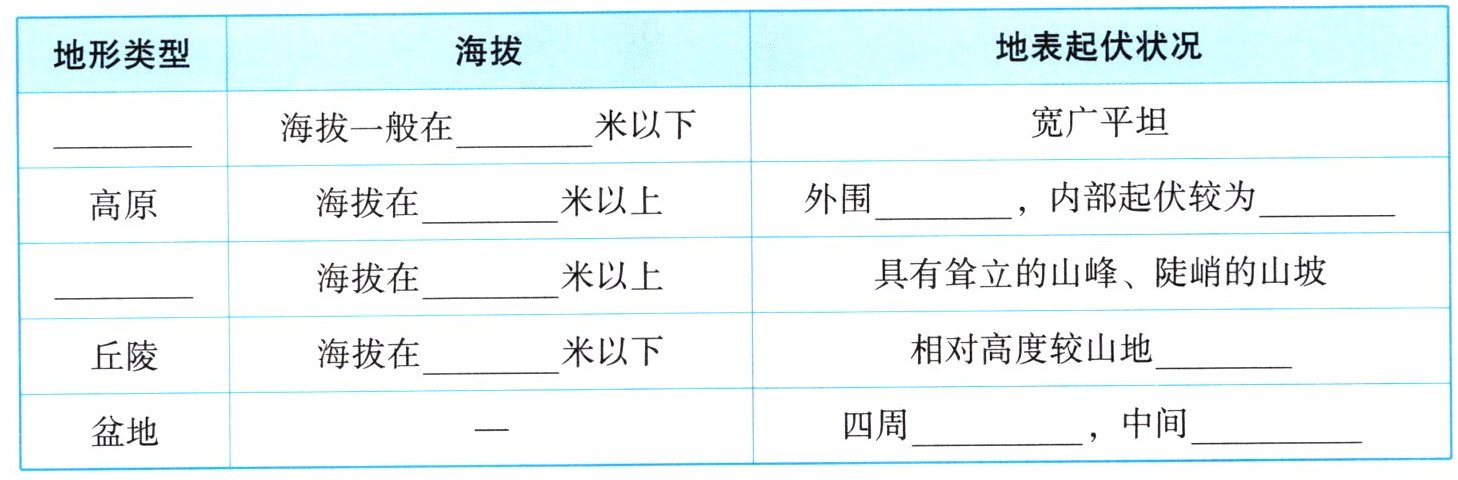 地形类型 海拔 地表起伏状况
________ 海拔一般在________米以下 宽广平坦
高原 海拔在________米以上 外围________，内部起伏较为________
________ 海拔在________米以上 具有耸立的山峰、陡峭的山坡
丘陵 海拔在________米以下 相对高度较山地________
盆地 — 四周__________，中间__________